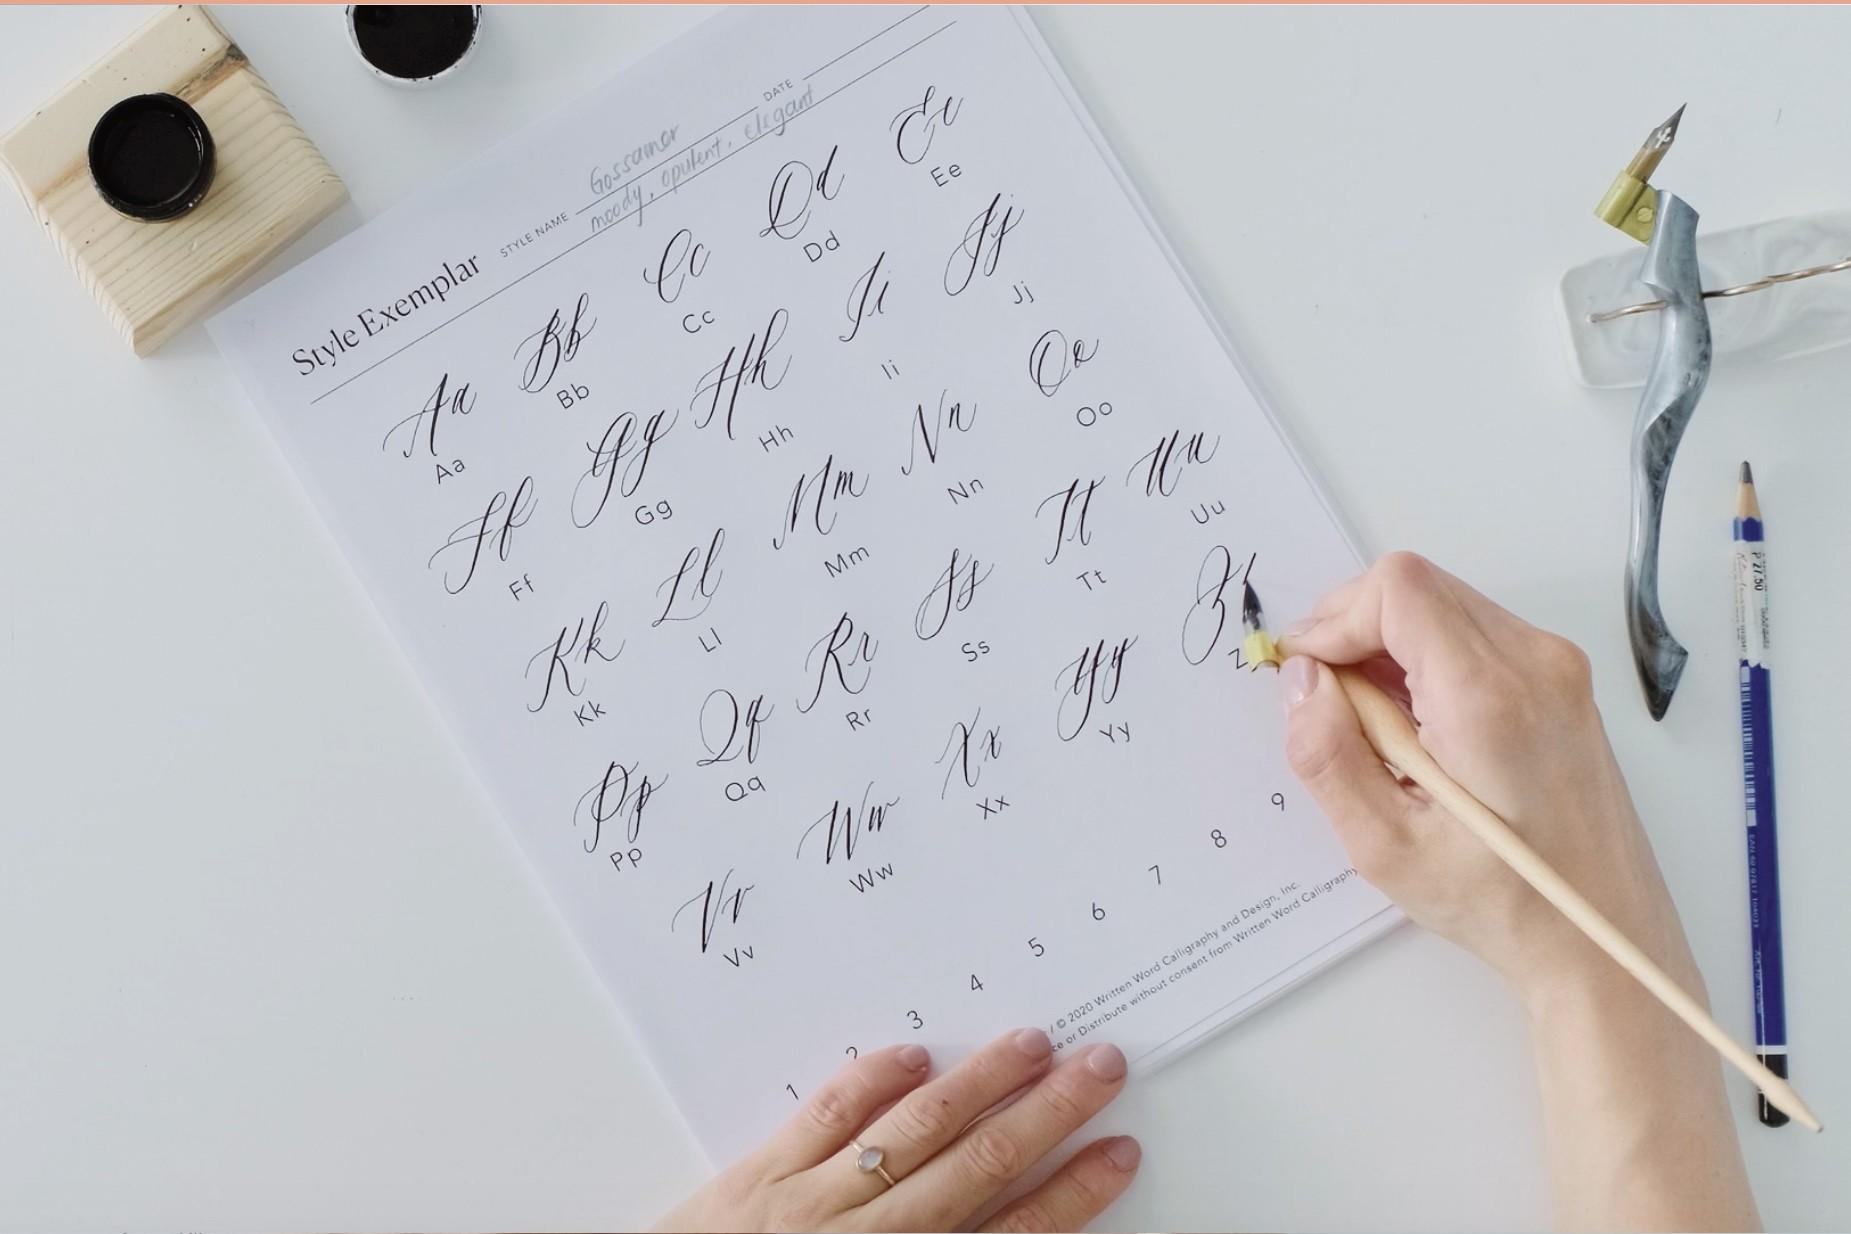 Style Exemplar
STYLE NAME Gossamer DATE
moody, opulent, elegant
Aa Bb Cc Dd Ee
Aa Bb Cc Dd Ee
Ff Gg Hh Ii Jj
Ff Gg Hh Ii Jj
Kk Ll Mm Nn Oo
Kk Ll Mm Nn Oo
Pp Qq Rr Ss Tt Uu
Pp Qq Rr Ss Tt Uu
Vv Ww Xx Yy Z
Vv Ww Xx Yy Z
1 2 3 4 5 6 7 8 9
/ © 2020 Written Word Calligraphy and Design, Inc.
or Distribute without consent from Written Word Calligraphy
P 27.50